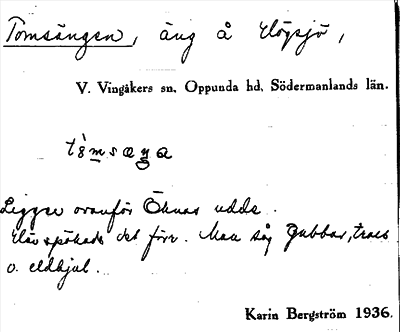 Tomsängen, äng å Högsjö,
V. Vingåkers sn. Oppunda hd. Södermanlands län.
Ligger ovanför Öknas udde.
Här spökade det förr. Man såg gubbar,
o. eldhjul.
Karin Bergström 1936.